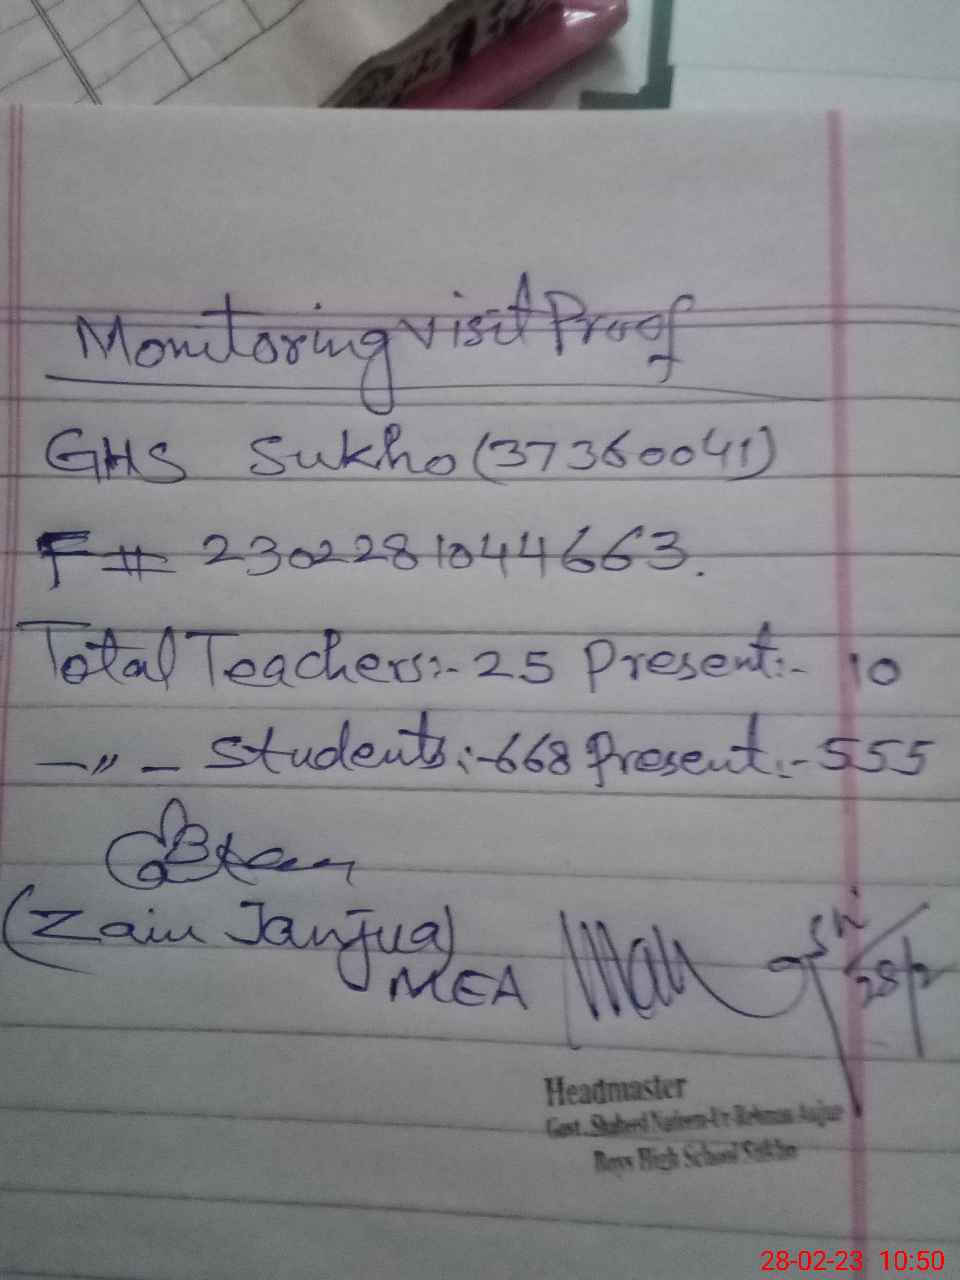 Monitoring Visit Proof
GHS Sukho (37360041)
F # 2302281044663.
Total Teachers:- 25 Present:- 10
—〃— Students:- 668 Present:- 555
(Zain Janjua)
MEA
28/2
Headmaster
Govt. Shaheed Naeem-Ur-Rehman Anjum
Boys High School Sukho
28-02-23 10:50